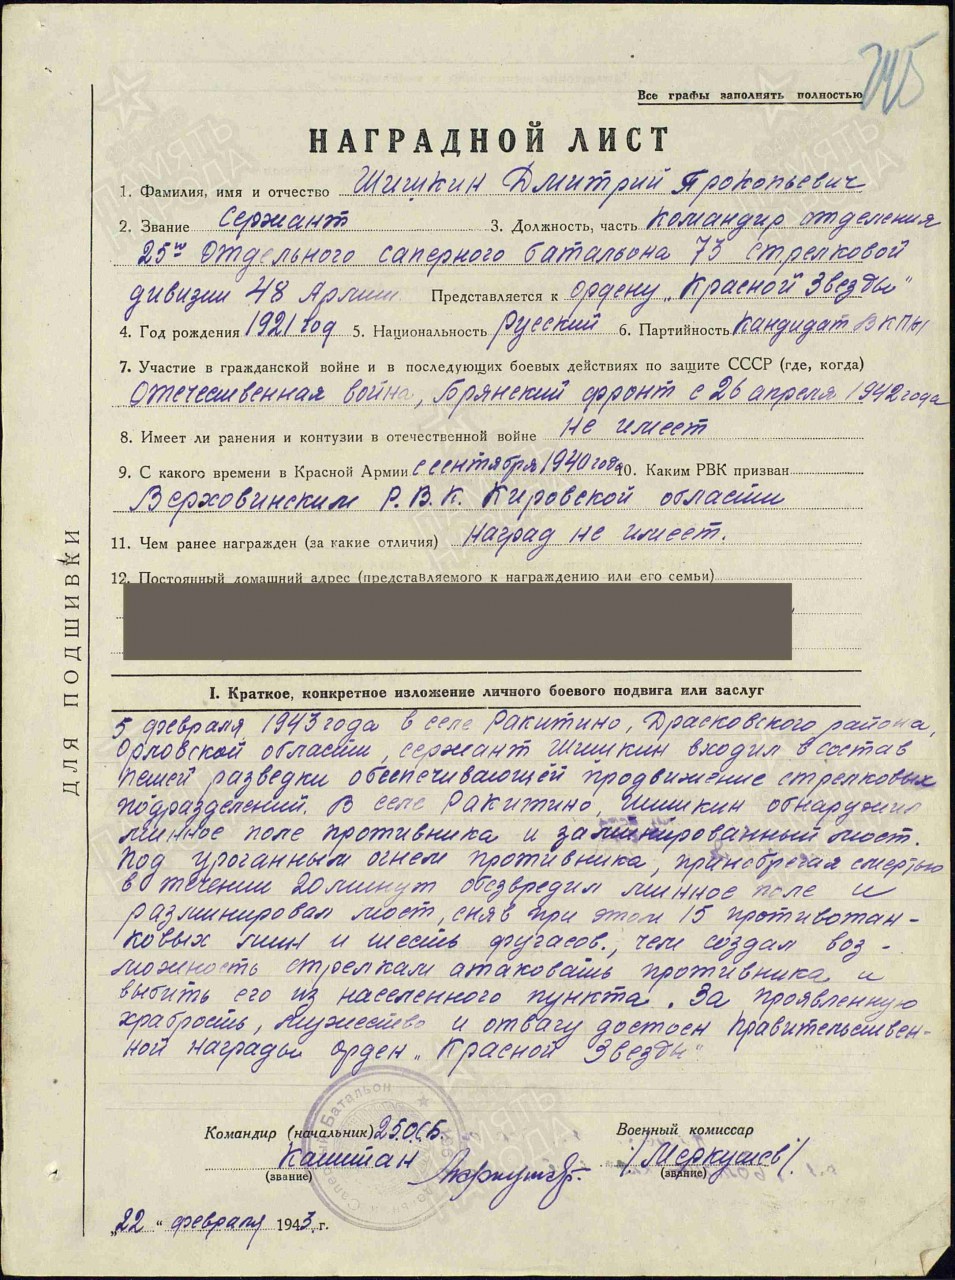 Все графы заполнять полностью
НАГРАДНОЙ ЛИСТ
1. Фамилия, имя и отчество Шишкин Дмитрий Прокопьевич
2. Звание Сержант 3. Должность, часть Командир отделения
25го Отдельного саперного батальона 73 стрелковой
дивизии 48 Армии. Представляется к ордену „Красной Звезды"
4. Год рождения 1921 год 5. Национальность Русский 6. Партийность Кандидат ВКП/б/
7. Участие в гражданской войне и в последующих боевых действиях по защите СССР (где, когда)
Отечественная война, Брянский фронт с 26 апреля 1942 года
8. Имеет ли ранения и контузии в отечественной войне не имеет
9. С какого времени в Красной Армии с сентября 1940 года 10. Каким РВК призван
Верховинским Р.В.К. Кировской области
11. Чем ранее награжден (за какие отличия) Наград не имеет.
12. Постоянный домашний адрес (представляемого к награждению или его семьи)
I. Краткое, конкретное изложение личного боевого подвига или заслуг
5 февраля 1943 года в селе Ракитино, Дросковского района,
Орловской области, сержант Шишкин входил в состав
пешей разведки обеспечивающей продвижение стрелковых
подразделений. В селе Ракитино, Шишкин обнаружил
минное поле противника и заминированный мост.
Под ураганным огнем противника, принебрегая смертью
в течении 20 минут обезвредил минное поле и
разминировал мост, сняв при этом 15 противотан-
ковых мин и шесть фугасов., чем создал воз-
можность стрелкам атаковать противника и
выбить его из населенного пункта. За проявленную
храбрость, мужество и отвагу достоен правительствен-
ной награды орден „Красной Звезды"
Командир (начальник) 25 ОСБ Военный комиссар
Капитан /Меркушев/.
(звание) (звание)
„22" февраля 1943 г.
ДЛЯ ПОДШИВКИ
ПАМЯТЬ НАРОДА